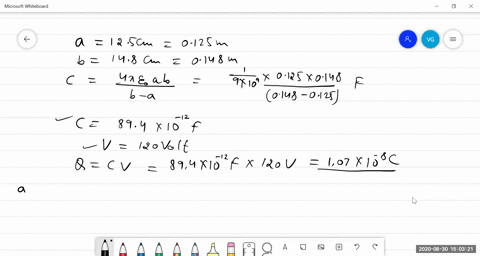 Microsoft Whiteboard
VG
a = 12.5cm = 0.125m
b = 14.8cm = 0.148m
C = 4πε₀ab / b-a = 1/9×10⁹ × 0.125 × 0.148 / (0.148 - 0.125) F
✓ C = 89.4 × 10⁻¹² f
✓ V = 120Volt
Q = CV = 89.4×10⁻¹²F × 120V = 1.07 × 10⁻⁸C
a
2020-08-30 15:03:21